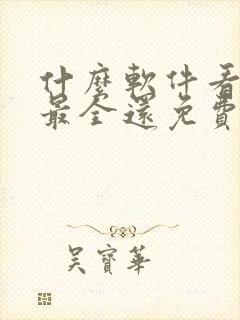 什麼軟件看
最全還免費
吳寶華